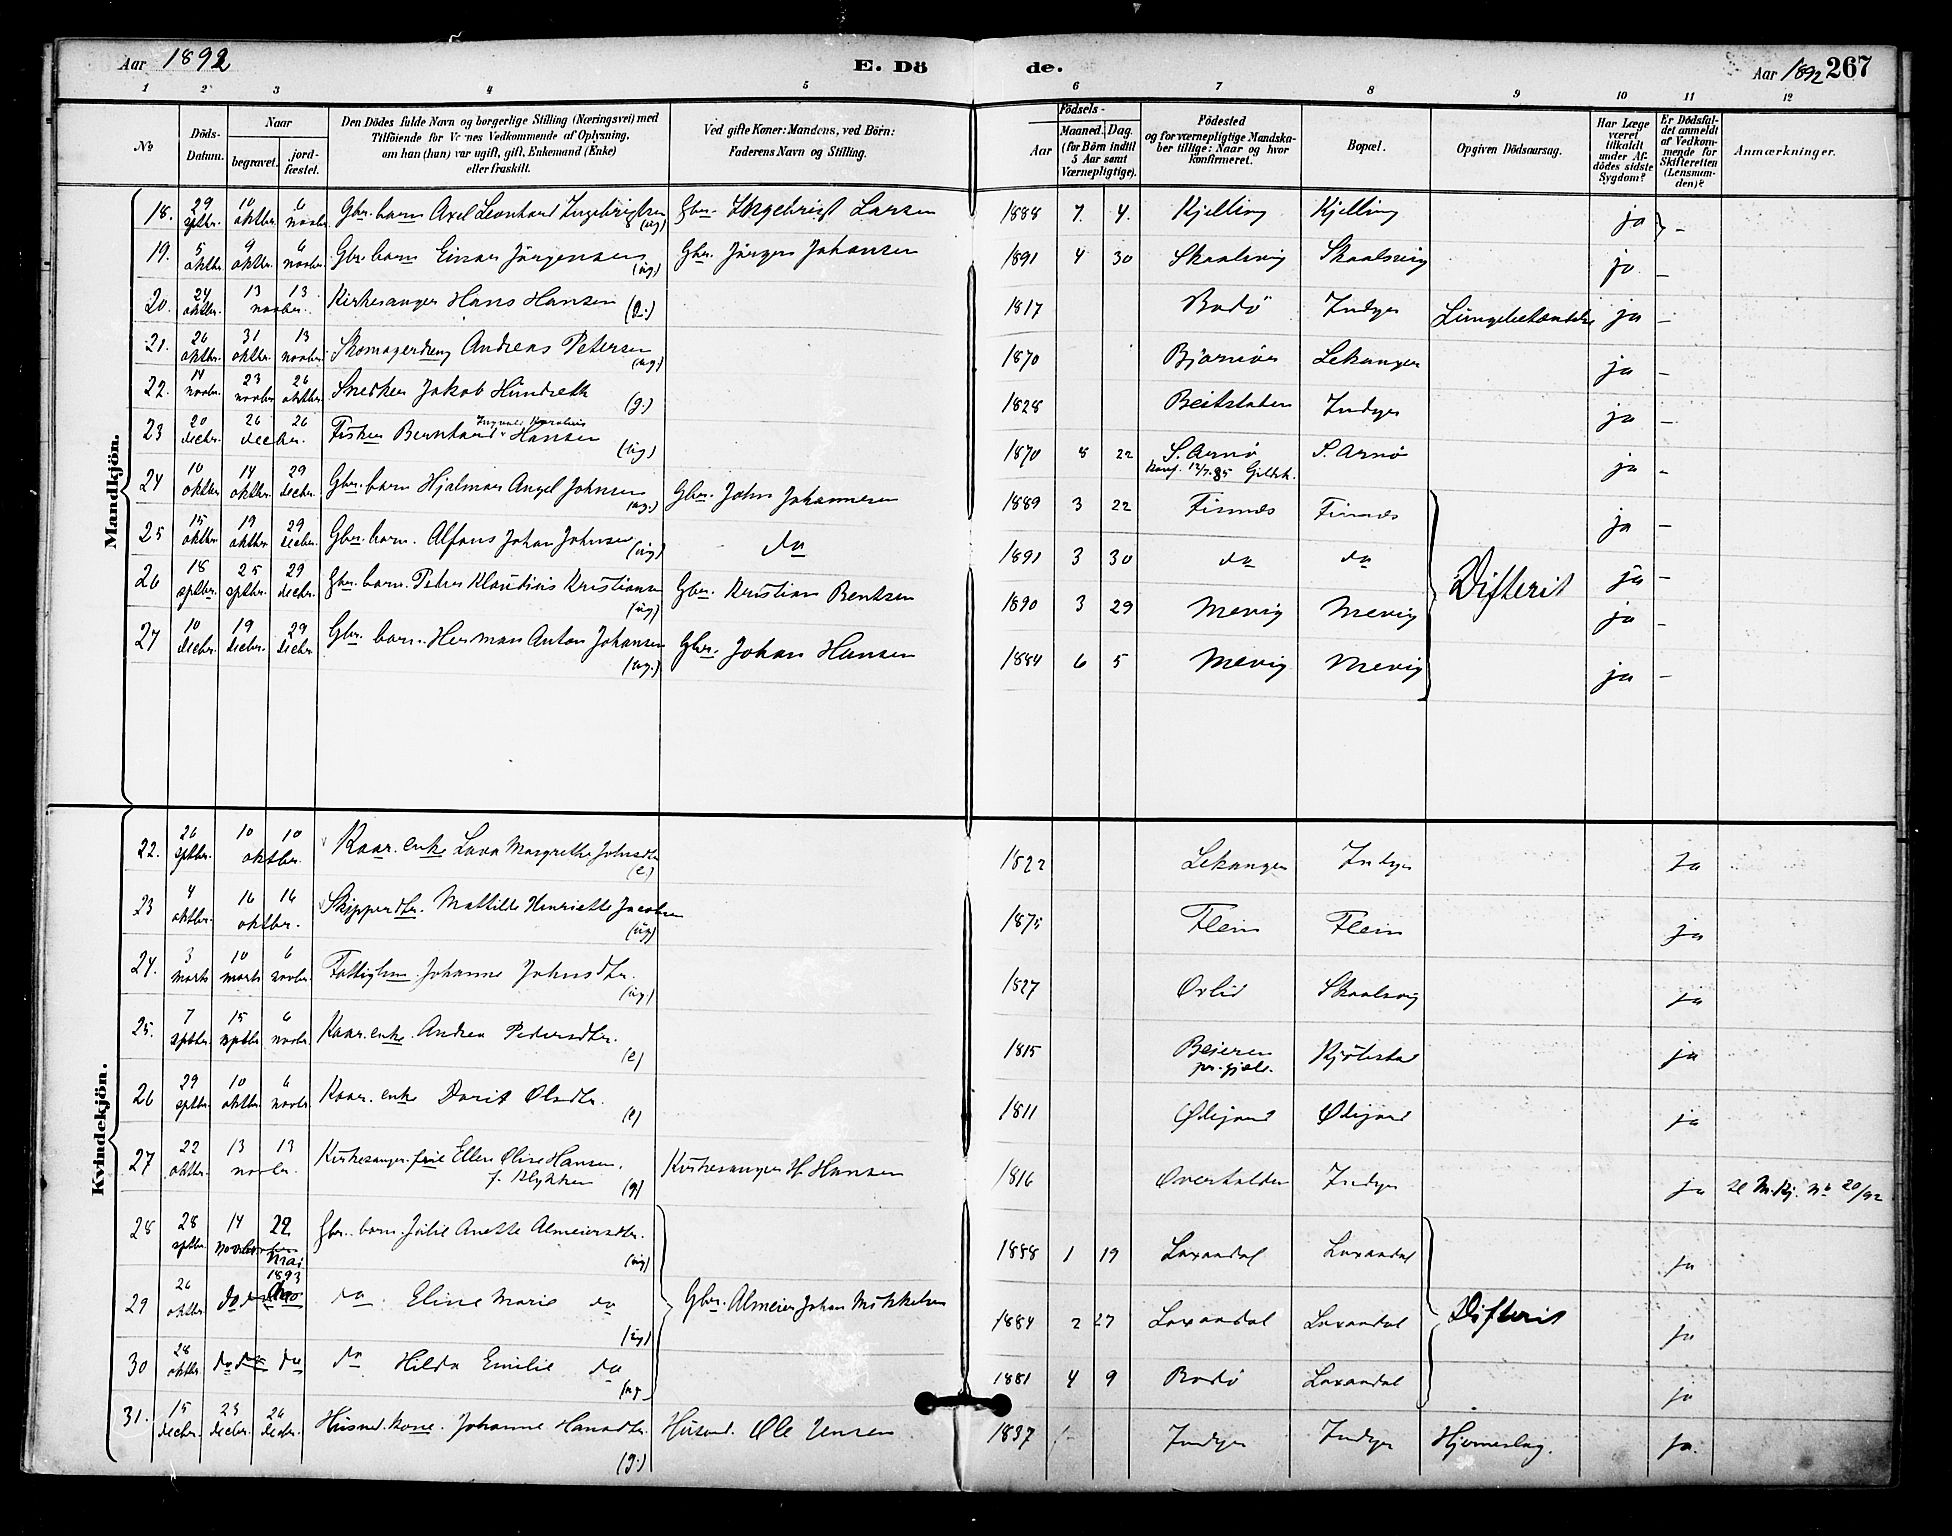 Aar 1892 E. Dö de. Aar 1892 267
1 2 3 4 5 6 7 8 9 10 11 12
No
Döds-Datum.
Naar
begravet. jord-fæstet.
Den Dödes fulde Navn og borgerlige Stilling (Næringsvei) med Tilföiende for Voxnes Vedkommende af Oplysning, om han (hun) var ugift, gift, Enkemand (Enke) eller fraskilt.
Ved gifte Koner: Mandens, ved Börn: Faderens Navn og Stilling.
Födsels-
Aar Maaned. Dag. (for Börn indtil 5 Aar samt Værnepligtige).
Födested og for værnepligtige Mandska-ber tillige: Naar og hvor konfirmeret.
Bopæl.
Opgiven Dödsaarsag.
Har Læge været tilkaldt under Af-dödes sidste Sygdom?
Er Dödsfal-det anmeldt af Vedkom-mende for Skifteretten (Lensman-den)?
Anmærkninger.
Mandkjön.
18. 29 sptbr. 10 oktbr. 6 novbr. Gbr. barn Axel Leonhard Ingebrigtsen (ug) Gbr. Ingebrigt Larsen 1888 7. 4. Kjelling Kjelling ja –
19. 5 oktbr. 9 oktbr. 6 novbr. Gbr. barn Einar Jörgensen (ug) Gbr. Jörgen Johansen 1891 4 30 Skaalsvig Skaalsvig ja –
20. 24 oktbr. 13 13 novbr. Kirkesanger Hans Hansen 1817 Bodö Indyr Lungebetændelse ja –
21. 26 oktbr. 31 oktbr. 13 novbr. Skomagerdreng Andreas Petersen (ug) 1870 Bjarnöe Lekanger ja –
22. 14 novbr. 23 novbr. 26 oktbr. Snedker Jakob Hundseth (g.) 1828 Beitstaden Indyr ja –
23 20 decbr. 26 26 decbr. Fisker Bernhard Hansen (ug) 1870 8 22 S. Arnö Konf. 12/7.85 Gildsk. S. Arnö ja –
24 10 oktbr. 14 oktbr. 29 decbr. Gbr. barn Hjalmar Angel Johnsen (ug.) Gbr. John Johannesen 1889 3 22 Finnæs Finnæs ja –
25 15 oktbr. 19 oktbr. 29 decbr. Gbr. barn. Alfons Johan Johnsen (ug) da 1891 3 30 da da Difterit ja –
26 18 sptbr. 25 sptbr. 29 decbr. Gbr. barn. Peter Klaudius Kristiansen (ug) Gbr. Kristian Bentsen 1890 3 29 Mevig Mevig ja –
27 10 decbr. 19 decbr. 29 decbr. Gbr. barn. Herman Anton Johansen (ug.) Gbr. Johan Hansen 1884 6 5 Mevig Mevig ja –
Kvindekjön.
22. 26 sptbr. 10 10 oktbr. Kaar. enke Lava Margrethe Johnsdtr (e.) 1822 Lekanger Indyr Ja
23 4 oktbr. 16 16 oktbr. Skipperdtr. Mathilde Henriette Jacobsen (ug) 1875 Flein Flein ja
24. 3 marts 10 marts 6 novbr. Fattiglem Johanne Johnsdtr. (ug.) 1827 Orlid Skaalsvig ja
25. 7 sptbr. 15 sptbr. 6 novbr. Kaar. enke. Andrea Pedersdtr. (e) 1815 Beieren Kjölstad ja
26 29 sptbr. 10 oktbr. 6 novbr. Kaar. enke Dorit Olsdtr. (e) 1811 Öksjord Öksjord ja
27 22 oktbr. 13 13 novbr. Kirkesanger. frue Ellen Oline Hansen. f. Blykken (g) Kirkesanger H. Hansen 1816 Overhalden Indyr ja se M.Kj. No 20/92
28 28 sptbr. 14 22 mai 1893 Gbr. barn. Julie Anette Almeiersdtr. (ug) 1888 1 19 Laxaadal Laxaadal ja
29 26 oktbr. do da. Eline Marie da (ug) Gbr. Almeier Johan Mikkelsen 1884 2 27 Laxaadal Laxaadal Difterit ja
30 28 oktbr. do do da da Hilda Emilie da (ug 1881 4 9 Bodö Laxaadal ja
31. 15 decbr. 23 decbr. 26 decbr. Husmd. kone. Johanne Hansdtr. (g.) Husmd. Ole Jensen 1837 Indyr Indyr Hjerneslag. ja.